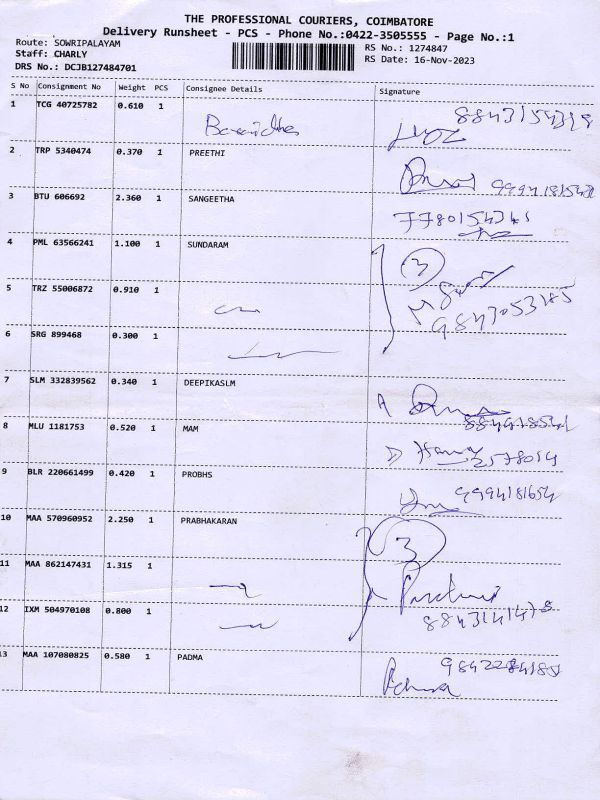 THE PROFESSIONAL COURIERS, COIMBATORE
Delivery Runsheet - PCS - Phone No.:0422-3505555 - Page No.:1
Route: SOWRIPALAYAM
Staff: CHARLY
DRS No.: DCJB127484701
RS No.: 1274847
RS Date: 16-Nov-2023
S No Consignment No Weight PCS Consignee Details Signature
1 TCG 40725782 0.610 1
2 TRP 5340474 0.370 1 PREETHI
3 BTU 606692 2.360 1 SANGEETHA
7780154341
4 PML 63566241 1.100 1 SUNDARAM
3
5 TRZ 55006872 0.910 1
9843053185
6 SRG 899468 0.300 1
7 SLM 332839562 0.340 1 DEEPIKASLM
8 MLU 1181753 0.520 1 MAM
2578014
9 BLR 220661499 0.420 1 PROBHS
9994181654
10 MAA 570960952 2.250 1 PRABHAKARAN
3
11 MAA 862147431 1.315 1
12 IXM 504970108 0.800 1
13 MAA 107080825 0.580 1 PADMA